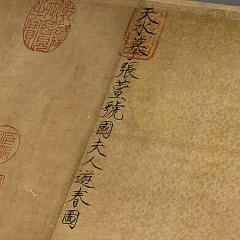 天水摹張萱虢國夫人遊春圖